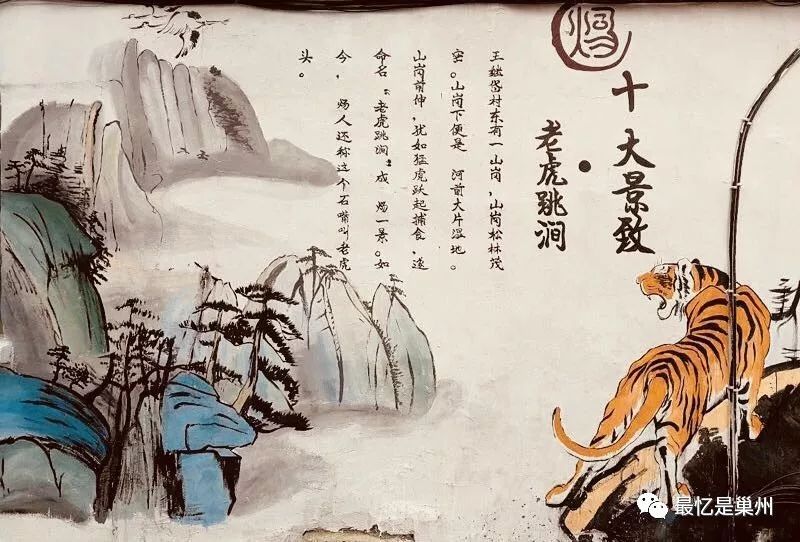 十大景致
·老虎跳涧
王岱村东有一山岗，山岗松林茂
密。山岗下便是 河前大片湿地。
山岗前伸，犹如猛虎跃起捕食，遂
命名“老虎跳涧”成 炀一景。如
今，炀人还称这个石嘴叫老虎
头。
最忆是巢州